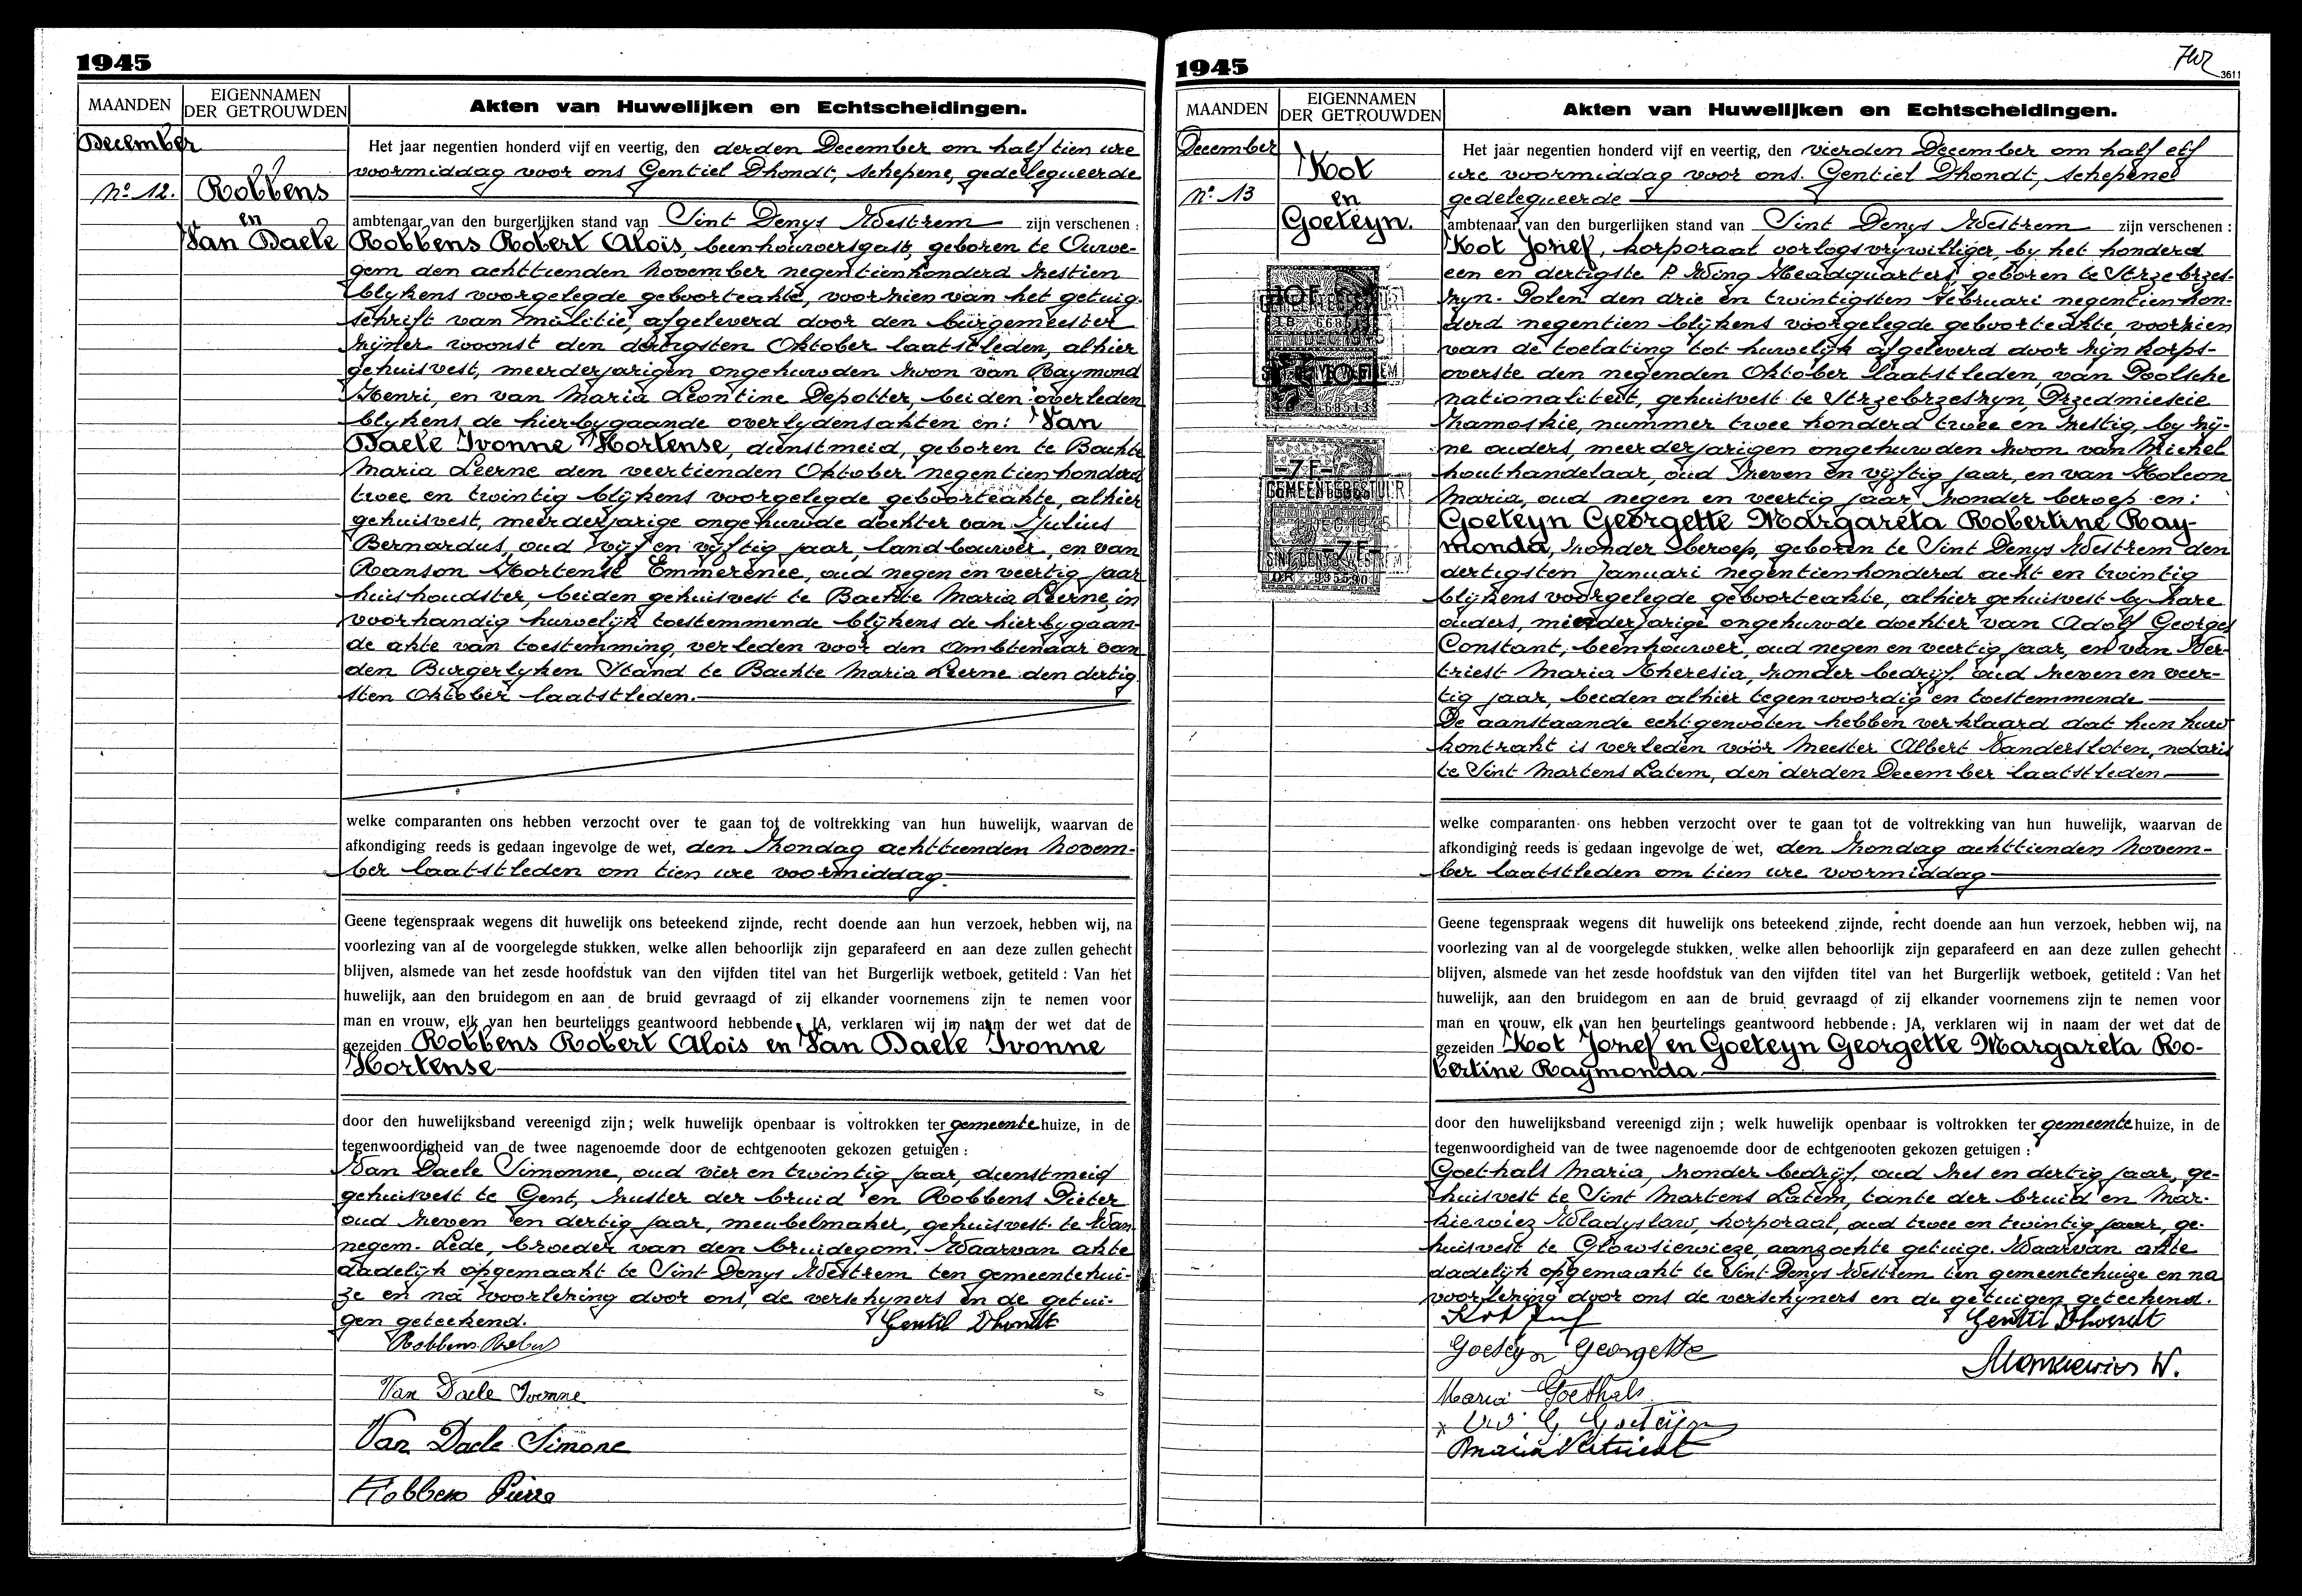 1945
MAANDEN
EIGENNAMEN
DER GETROUWDEN
Akten van Huwelijken en Echtscheidingen.
December
No 12.
Robbens
en
Van Daele
Het jaar negentien honderd vijf en veertig, den derden December om half tien ure
voormiddag voor ons Gentiel Dhondt, schepene, gedelegueerde
ambtenaar van den burgerlijken stand van Sint Denys Westrem zijn verschenen :
Robbens Robert Aloïs, beenhouwersgast, geboren te Ourve-
gem den achttienden November negentienhonderd zestien
blykens voorgelegde geboorteakte, voorzien van het getuig-
schrift van militie, afgeleverd door den burgemeester
zijner woonst den dertigsten Oktober laatstleden, alhier
gehuisvest, meerderjarigen ongehuwden zoon van Raymond
Henri, en van Maria Leontine Depotter, beiden overleden
blykens de hierbygaande overlydensakten en: Van
Daele Ivonne Hortense, dienstmeid, geboren te Bachte
Maria Leerne den veertienden Oktober negentienhonderd
twee en twintig blykens voorgelegde geboorteakte, alhier
gehuisvest, meerderjarige ongehuwde dochter van Julius
Bernardus, oud vijf en vijftig jaar, landbouwer, en van
Ranson Hortense Emmerence, oud negen en veertig jaar
huishoudster, beiden gehuisvest te Bachte Maria Leerne, in
voorhandig huwelijk toestemmende blykens de hierbygaan-
de akte van toestemming, verleden voor den Ambtenaar van
den Burgerlyken Stand te Bachte Maria Leerne den dertig-
sten Oktober laatstleden.
welke comparanten ons hebben verzocht over te gaan tot de voltrekking van hun huwelijk, waarvan de
afkondiging reeds is gedaan ingevolge de wet, den Zondag achttienden Novem-
ber laatstleden om tien ure voormiddag.
Geene tegenspraak wegens dit huwelijk ons beteekend zijnde, recht doende aan hun verzoek, hebben wij, na
voorlezing van al de voorgelegde stukken, welke allen behoorlijk zijn geparafeerd en aan deze zullen gehecht
blijven, alsmede van het zesde hoofdstuk van den vijfden titel van het Burgerlijk wetboek, getiteld : Van het
huwelijk, aan den bruidegom en aan de bruid gevraagd of zij elkander voornemens zijn te nemen voor
man en vrouw, elk van hen beurtelings geantwoord hebbende : JA, verklaren wij in naam der wet dat de
gezeiden Robbens Robert Alois en Van Daele Ivonne
Hortense
door den huwelijksband vereenigd zijn ; welk huwelijk openbaar is voltrokken ter gemeentehuize, in de
tegenwoordigheid van de twee nagenoemde door de echtgenooten gekozen getuigen :
Van Daele Simonne, oud vier en twintig jaar, dienstmeid
gehuisvest te Gent, zuster der bruid en Robbens Pieter
oud zeven en dertig jaar, meubelmaker, gehuisvest te Wan-
negem-Lede, broeder van den bruidegom. Waarvan akte
dadelijk opgemaakt te Sint Denys Westrem ten gemeentehui-
ze en na voorlezing door ons, de verschyners en de getui-
gen geteekend.
Gentil Dhondt
Robbens Robert
Van Daele Ivonne
Van Daele Simone
Robbens Pierre
1945
3611
MAANDEN
EIGENNAMEN
DER GETROUWDEN
Akten van Huwelijken en Echtscheidingen.
December
No 13
Kot
en
Goeteyn.
Het jaar negentien honderd vijf en veertig, den vierden December om half elf
ure voormiddag voor ons. Gentiel Dhondt, schepene
gedelegueerde
ambtenaar van den burgerlijken stand van Sint Denys Westrem zijn verschenen :
Kot Jozef, korporaal oorlogsvrijwilliger, by het honderd
een en dertigste P. Wing Headquarters, geboren te Strzebrzes-
zyn-Polen den drie en twintigsten Februari negentien hon-
derd negentien blijkens voorgelegde geboorteakte, voorzien
van de toelating tot huwelijk afgeleverd door zijn korps-
overste den negenden Oktober laatstleden, van Poolsche
nationaliteit, gehuisvest te Strzebrzeszyn, Przedmiescie
Zhamoskie, nummer twee honderd twee en zestig, by zij-
ne ouders, meerderjarigen ongehuwden zoon van Michel
houthandelaar, oud zeven en vijftig jaar, en van Holeon
Maria, oud negen en veertig jaar, zonder beroep en:
Goeteyn Georgette Margareta Robertine Ray-
monda, zonder beroep, geboren te Sint Denys Westrem den
dertigsten Januari negentienhonderd acht en twintig
blijkens voorgelegde geboorteakte, alhier gehuisvest by hare
ouders, minderjarige ongehuwde dochter van Adolf Georges
Constant, beenhouwer, oud negen en veertig jaar, en van Ver-
triest Maria Theresia, zonder bedrijf, oud zeven en veer-
tig jaar, beiden alhier tegenwoordig en toestemmende
De aanstaande echtgenooten hebben verklaard dat hun huw
kontrakt is verleden vóór Meester Albert Vandersloten, notaris
te Sint Martens Latem, den derden December laatstleden
welke comparanten ons hebben verzocht over te gaan tot de voltrekking van hun huwelijk, waarvan de
afkondiging reeds is gedaan ingevolge de wet, den Zondag achttienden Novem-
ber laatstleden om tien ure voormiddag
Geene tegenspraak wegens dit huwelijk ons beteekend zijnde, recht doende aan hun verzoek, hebben wij, na
voorlezing van al de voorgelegde stukken, welke allen behoorlijk zijn geparafeerd en aan deze zullen gehecht
blijven, alsmede van het zesde hoofdstuk van den vijfden titel van het Burgerlijk wetboek, getiteld : Van het
huwelijk, aan den bruidegom en aan de bruid gevraagd of zij elkander voornemens zijn te nemen voor
man en vrouw, elk van hen beurtelings geantwoord hebbende : JA, verklaren wij in naam der wet dat de
gezeiden Kot Jozef en Goeteyn Georgette Margareta Ro-
bertine Raymonda
door den huwelijksband vereenigd zijn ; welk huwelijk openbaar is voltrokken ter gemeentehuize, in de
tegenwoordigheid van de twee nagenoemde door de echtgenooten gekozen getuigen :
Goethals Maria, zonder bedrijf, oud zes en dertig jaar, ge-
huisvest te Sint Martens Latem, tante der bruid en Mar-
kiewiez Wladyslaw, korporaal, oud twee en twintig jaar, ge-
huisvest te Glowsiewieze, aanzochte getuige. Waarvan akte
dadelijk opgemaakt te Sint Denys Westrem ten gemeentehuize en na
voorlezing door ons de verschyners en de getuigen geteekend.
Kot Jozef
Gentil Dhondt
Goeteyn Georgette
Markiewicz W.
Maria Goethals
G. Goeteijn
Maria Vertriest